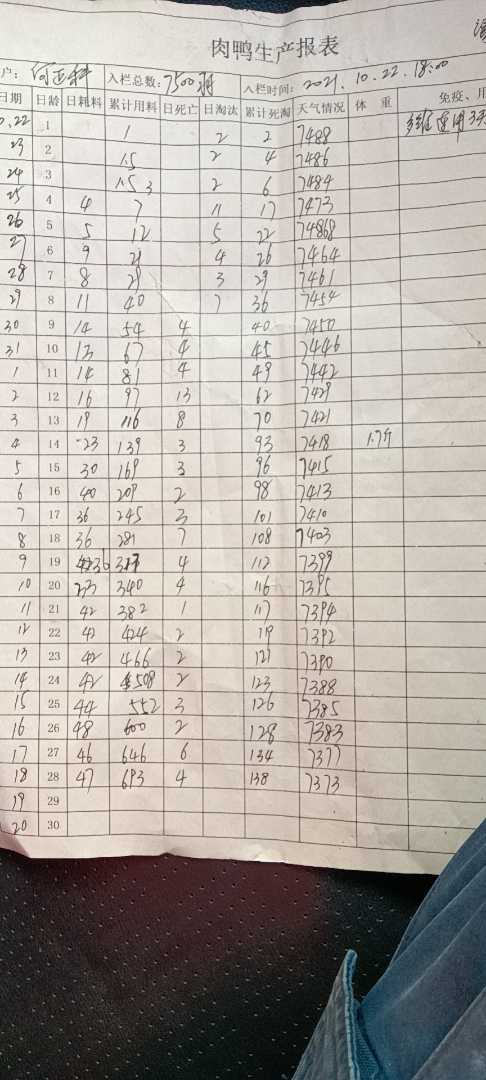 肉鸭生产报表
户: 何正 入栏总数: 7500羽 入栏时间: 2021.10.22.18:00
日期 日龄 日耗料 累计用料 日死亡 日淘汰 累计死淘 天气情况 体 重 免疫、用
0.22 1 1 2 2 7488 多维 连用3天
23 2 1.5 2 4 7486
24 3 1.5 3 2 6 7484
25 4 4 7 11 17 7473
26 5 5 12 5 22 74868
27 6 9 21 4 26 7464
28 7 8 29 3 29 7461
29 8 11 40 7 36 7454
30 9 14 54 4 40 7450
31 10 13 67 4 45 7446
1 11 14 81 4 49 7442
2 12 16 97 13 62 7429
3 13 19 116 8 70 7421
4 14 23 139 3 93 7418 1.7斤
5 15 30 169 3 96 7415
6 16 40 209 2 98 7413
7 17 36 245 3 101 7410
8 18 36 281 7 108 7403
9 19 36 317 4 112 7399
10 20 23 340 4 116 7395
11 21 42 382 1 117 7394
12 22 42 424 2 119 7392
13 23 42 466 2 121 7390
14 24 42 508 2 123 7388
15 25 44 552 3 126 7385
16 26 48 600 2 128 7383
17 27 46 646 6 134 7377
18 28 47 693 4 138 7373
19 29
20 30